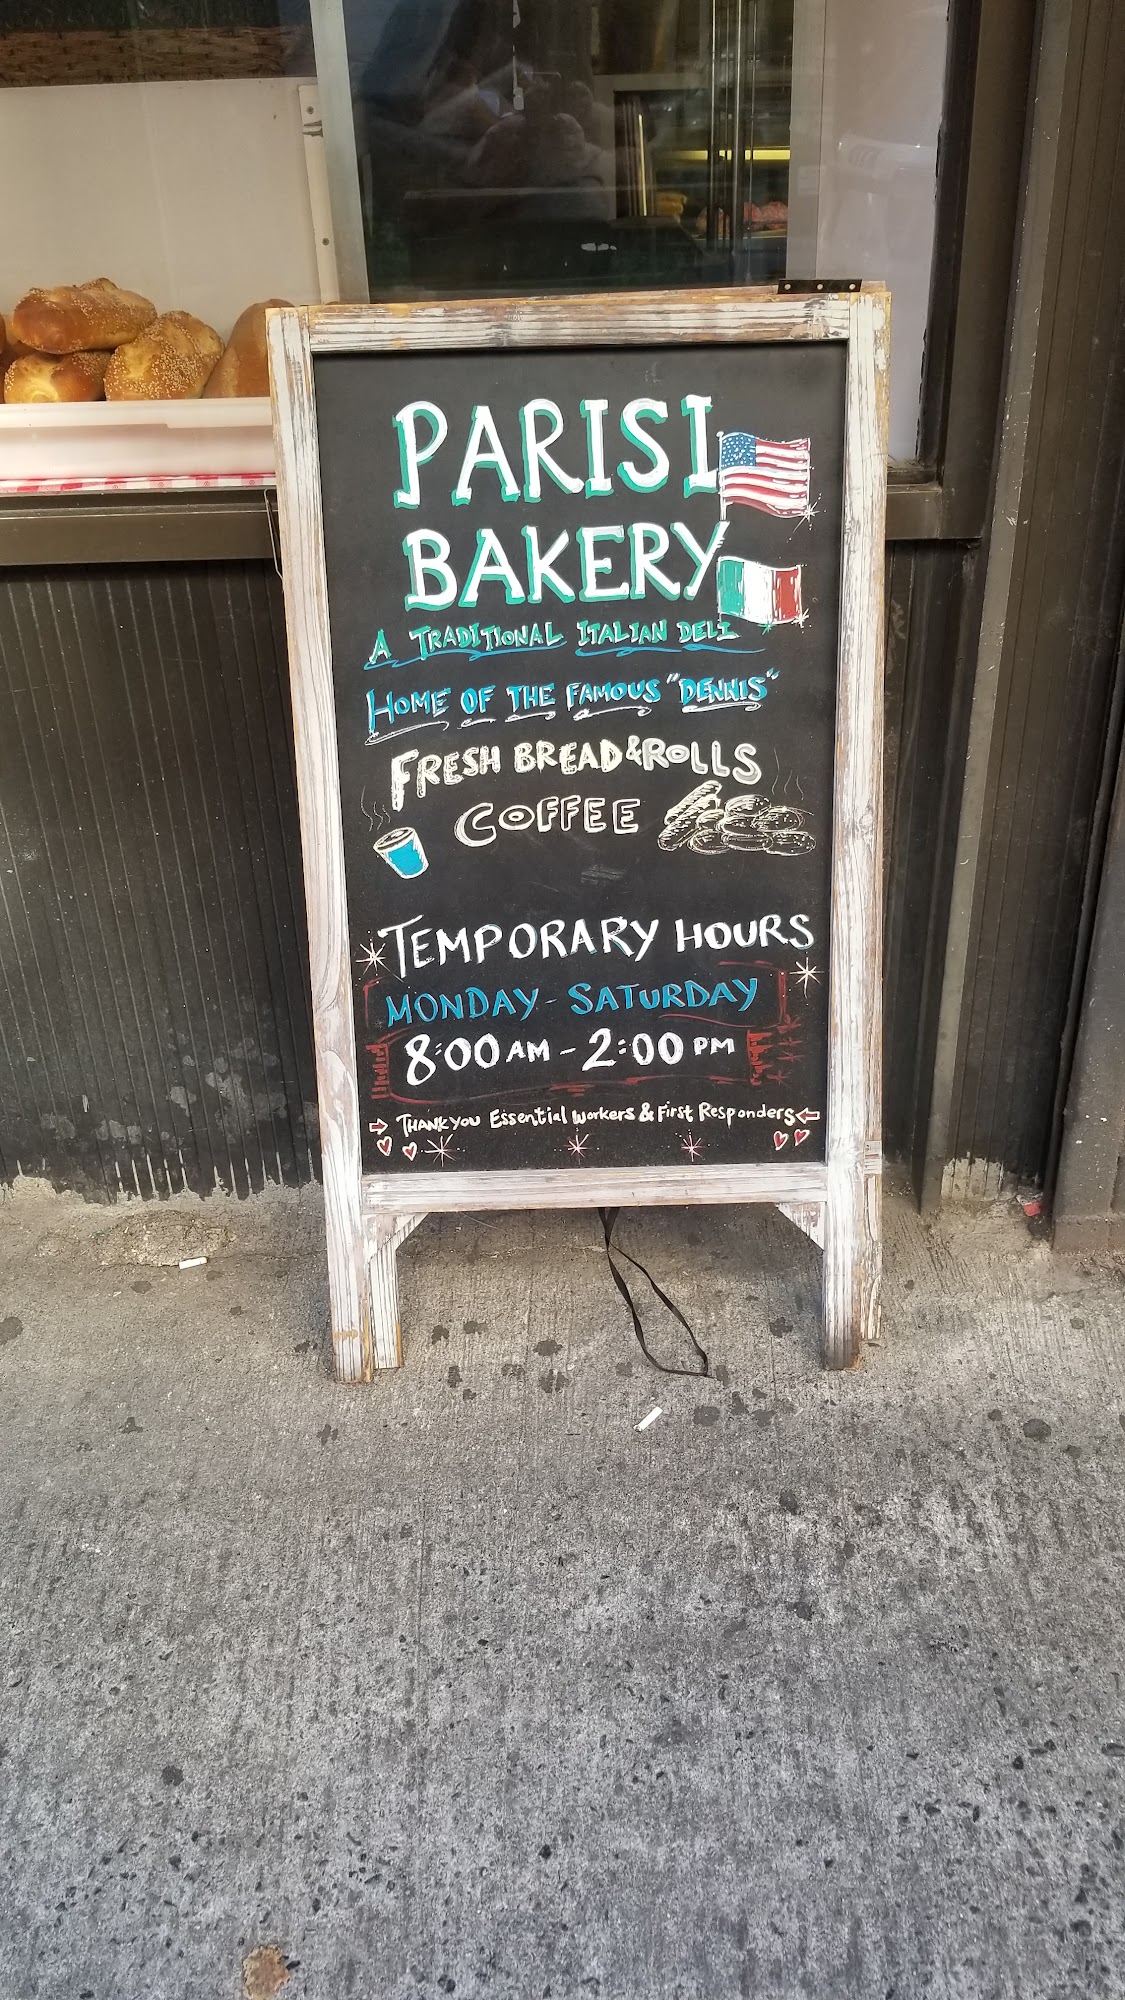 PARISI
BAKERY
A TRADITIONAL ITALIAN DELI
HOME OF THE FAMOUS "DENNIS"
FRESH BREAD & ROLLS
COFFEE
TEMPORARY HOURS
MONDAY - SATURDAY
8:00 AM - 2:00 PM
THANK YOU Essential workers & First Responders